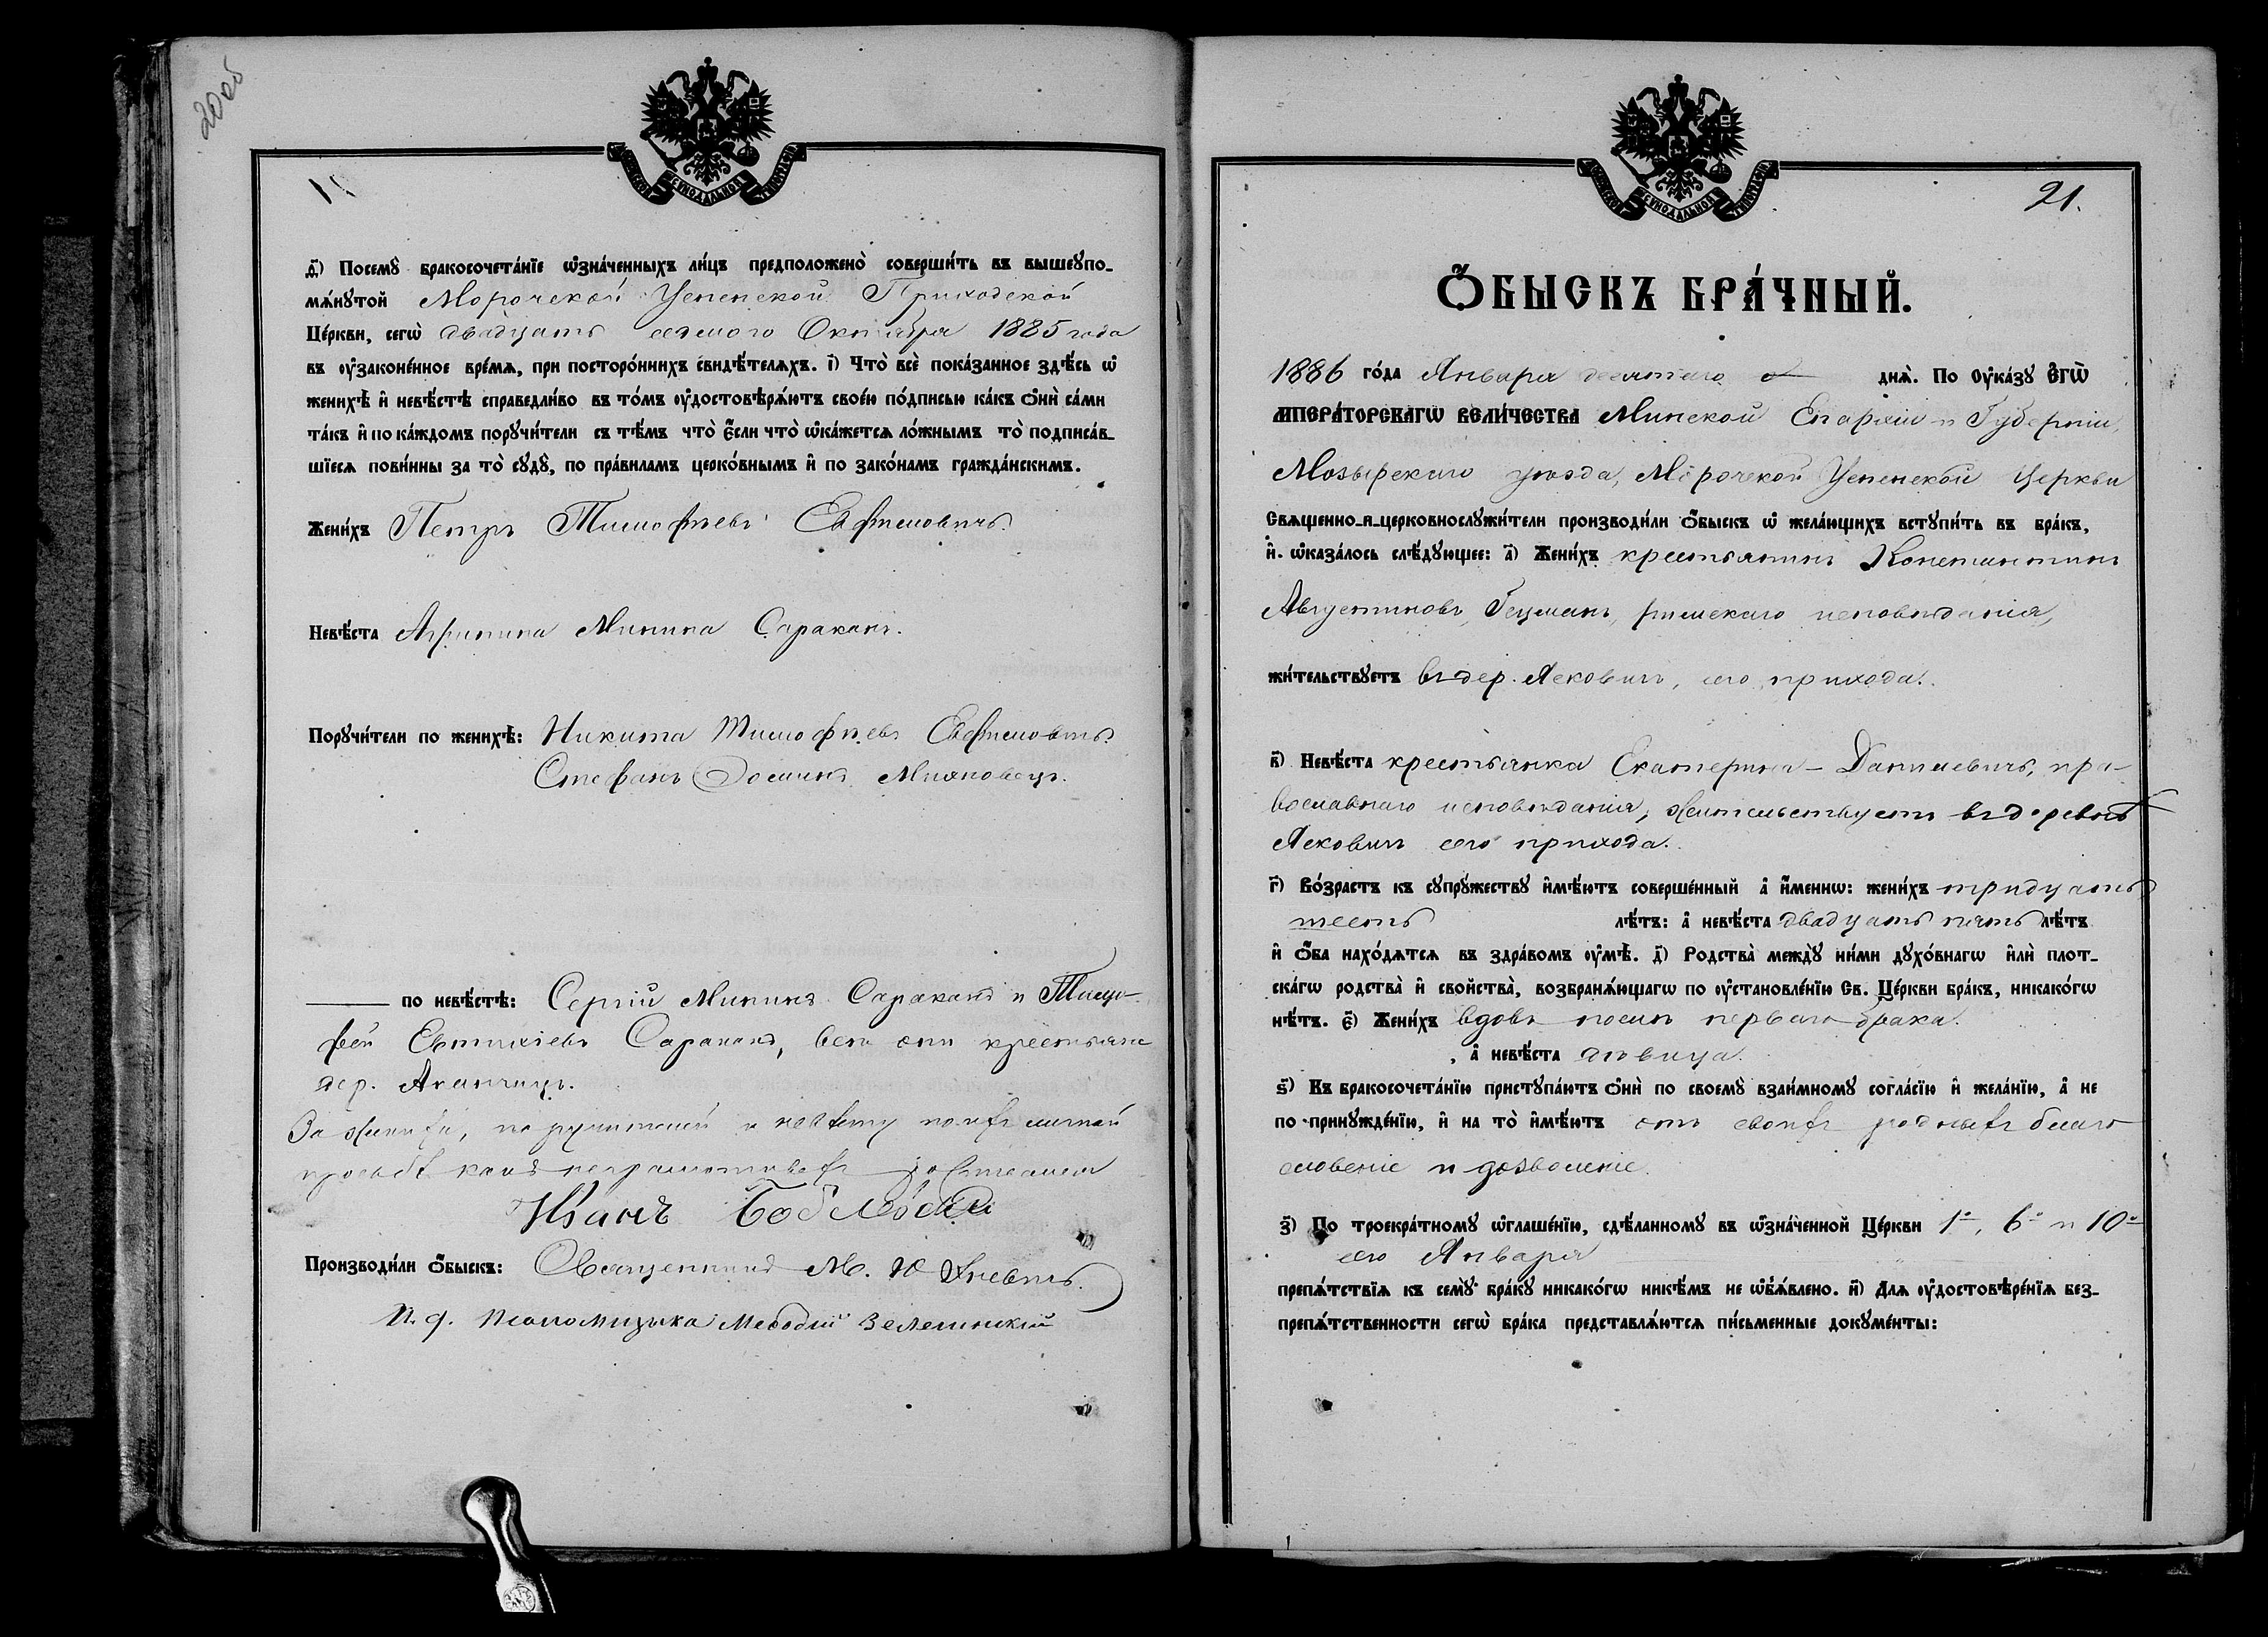 20 об
МОСКОВСКОЙ СѴНОДАЛЬНОЙ ТИПОГРАФІИ
д҃і) Посемꙋ̀ бракосочета́нїе ѡ҆зна́ченныхъ ли́цъ предположено̀ соверши́ть въ вышеꙋпо-
мѧ́нꙋтой Морочской Успенской Приходской
Це́ркви, сегѡ̀ двадцать седьмого Октября 1885 года
въ ᲂу҆законе́нное вре́мѧ, при посторо́ннихъ свидѣ́телѧхъ. і҃) Что̀ всѐ пока́занное здѣ́сь ѡ҆
женихѣ̀ и҆ невѣ́стѣ справедли́во въ то́мъ ᲂу҆достовѣрѧ́ютъ свое́ю по́дписью ка́къ ѻ҆нѝ са́ми
та́къ и҆ по ка́ждомъ порꙋчи́тели съ тѣ́мъ что̀ є҆́сли что̀ ѡ҆ка́жется ло́жнымъ то̀ подписа́в-
шїеся пови́нны за то̀ сꙋдꙋ̀, по пра́виламъ церко́внымъ и҆ по зако́намъ гражда́нскимъ.
Жени́хъ Петръ Тимофѣевъ Евфимовичъ.
Невѣ́ста Агрипина Минина Сараканъ.
Порꙋчи́тели по женихѣ̀: Никита Тимофѣевъ Евфимовичъ.
Стефанъ Фоминъ Михновецъ.
по невѣ́стѣ: Сергій Мининъ Сараканъ и Тимо-
фей Евтихіевъ Сараканъ, всѣ они крестьяне
дер.
За жениха, поручителей и невѣсту по ихъ личной
просьбѣ какъ неграмотныхъ
Иванъ
Производи́ли ѻ҆́быскъ: Священникъ М. Юхневичъ.
И. д. Псаломщика Меѳодій Зелепинскій
МОСКОВСКОЙ СѴНОДАЛЬНОЙ ТИПОГРАФІИ
21.
Ѻ҆́БЫСКЪ БРА́ЧНЫЙ.
1886 го́да Января десятаго днѧ̀. По Оу҆ка́зꙋ Е҆ГѠ̀
ИМПЕРА́ТОРСКАГѠ ВЕЛИ́ЧЕСТВА Минской Епархіи и Губерніи,
Мозырскаго уѣзда, Морочской Успенской церкви
Свѧщенно-и-церковнослꙋжи́тели производи́ли ѻ҆́быскъ ѡ҆ жела́ющихъ встꙋпи́ть въ бра́къ,
и҆. ѡ҆каза́лось слѣ́дꙋющее: а҃) Жени́хъ крестьянинъ Константинъ
Августиновъ Гецманъ, римскаго исповѣданія,
жи́тельствꙋетъ въ дер. Ясковичъ, сего прихода.
в҃) Невѣ́ста крестьянка Екатерина – Данилевичъ, пра-
вославнаго исповѣданія, жительствуетъ въ деревнѣ
Ясковичъ сего прихода.
г҃) Во́зрастъ къ сꙋпрꙋ́жествꙋ и҆мѣ́ютъ соверше́нный а҆ и҆́меннѡ: жени́хъ тридцать
шесть лѣ́тъ: а҆ невѣ́ста двадцать пять лѣ́тъ
и҆ ѻ҆́ба нахо́дѧтсѧ въ здра́вомъ ᲂу҆мѣ̀. д҃) Родства̀ междꙋ̀ ни́ми дꙋхо́внагѡ и҆лѝ плот-
ска́гѡ родства̀ и҆ свойства̀, возбранѧ́ющагѡ по ᲂу҆становле́нїю Св. Це́ркви бра́къ, никако́гѡ
нѣ́тъ. є҃) Жени́хъ вдовъ послѣ перваго брака.
, а҆ невѣ́ста дѣвица.
ѕ҃) Къ бракосочета́нїю пристꙋпа́ютъ ѻ҆нѝ по своемꙋ̀ взаи́мномꙋ согла́сїю и҆ жела́нїю, а҆ не
по принꙋжде́нїю, и҆ на то̀ и҆мѣ́ютъ отъ своихъ родныхъ благо
словеніе и дозволеніе.
з҃) По троекра́тномꙋ ѡ҆глаше́нїю, сдѣ́ланномꙋ въ ѡ҆зна́ченной Це́ркви 1го, 6го и 10го
сего Января
препѧ́тствїѧ къ семꙋ̀ бра́кꙋ никако́гѡ никѣ́мъ не ѡ҆б̾ѧ́влено. и҃) Длѧ ᲂу҆достовѣре́нїѧ без-
препѧ́тственности сегѡ̀ бра́ка представлѧ́ютсѧ пи́сьменные докꙋме́нты: